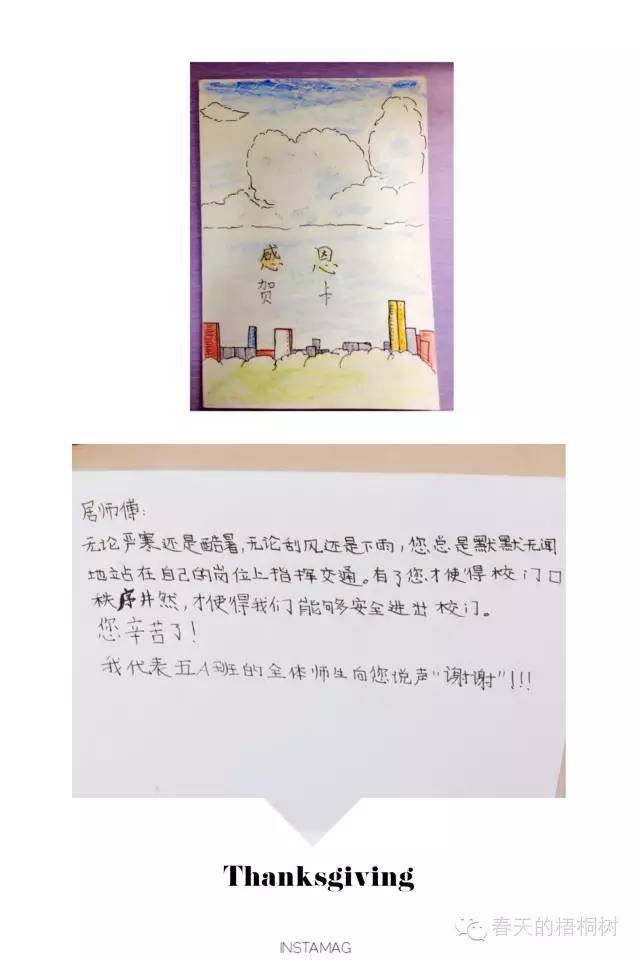 感恩
贺卡
居师傅:
无论严寒还是酷暑,无论刮风还是下雨,您总是默默无闻
地站在自己的岗位上指挥交通。有了您才使得校门口
秩序井然,才使得我们能够安全进出校门。
您辛苦了!
我代表五A班的全体师生向您说声“谢谢”!!!
Thanksgiving
春天的梧桐树
INSTAMAG